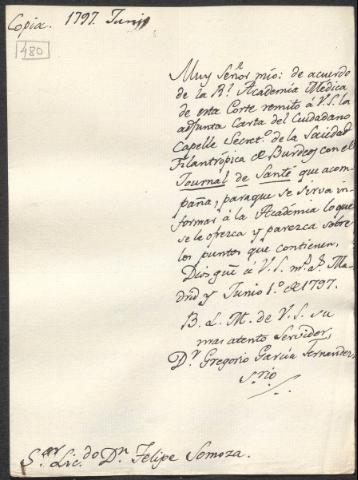 Copia. 1797. Junio
480
Muy Señor mio: de acuerdo
de la Rl. Academia Medica
de esta Corte remito á V.S. la
adjunta Carta del Ciudadano
Capelle Secreto. de la Sociedad
Filantrópica de Burdeos con el
Journal de Santé que acom-
paña, para que se sirva in-
formar á la Académia lo que
se le ofrezca y parezca sobre
los puntos que contienen.
Dios gue. á V.S. ms. as. Ma-
drid y Junio 1.º de 1797.
B. L. M. de V. S. su
mas atento Servidor,
Dr. Gregorio García Fernandez,
Srio
Sor. Licdo. Dn. Felipe Somoza.